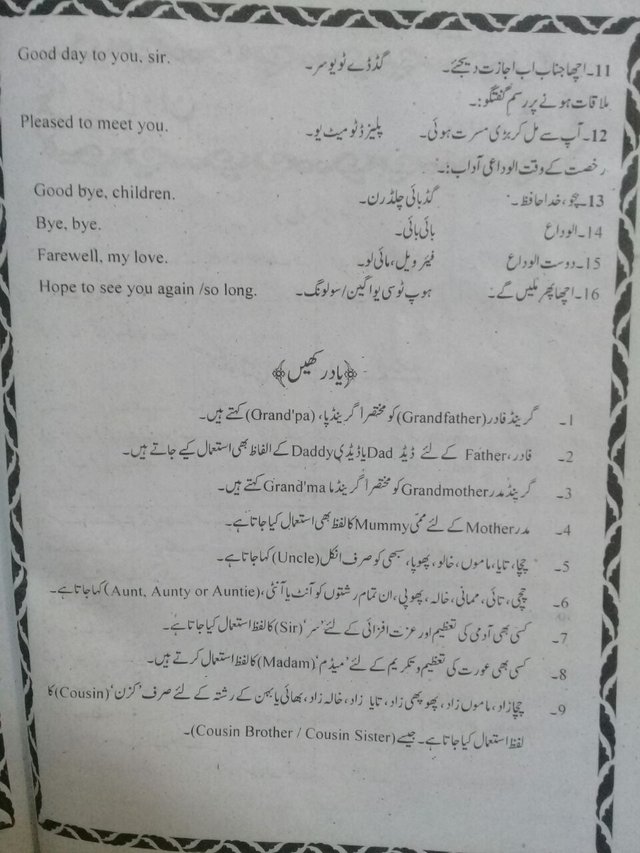 11۔اچھا جناب اب اجازت دیجئے۔ گڈڈے ٹو یوسر۔ Good day to you, sir.
ملاقات ہونے پر رسمِ گفتگو:۔
12۔آپ سے مل کر بڑی مسرت ہوئی۔ پلیزڈ ٹو میٹ یو۔ Pleased to meet you.
رخصت کے وقت الوداعی آداب:۔
13۔بچو، خدا حافظ۔ گڈ بائی چلڈرن۔ Good bye, children.
14۔الوداع بائی بائی۔ Bye, bye.
15۔دوست الوداع فیئر ویل، مائی لو۔ Farewell, my love.
16۔اچھا پھر ملیں گے۔ ہوپ ٹوسی یو اگین/سولونگ۔ Hope to see you again /so long.
﴿یاد رکھیں﴾
1۔ گرینڈ فادر (Grandfather) کو مختصراً گرینڈ پا، (Grand'pa) کہتے ہیں۔
2۔ فادر، Father کے لئے ڈیڈ Dad یا ڈیڈی Daddy کے الفاظ بھی استعمال کیے جاتے ہیں۔
3۔ گرینڈ مدر Grandmother کو مختصراً گرینڈ ما Grand'ma کہتے ہیں۔
4۔ مدر Mother کے لئے ممّی Mummy کا لفظ بھی استعمال کیا جاتا ہے۔
5۔ چچا، تایا، ماموں، خالو، پھوپا، سبھی کو صرف انکل (Uncle) کہا جاتا ہے۔
6۔ چچی، تائی، ممانی، خالہ، پھوپی، ان تمام رشتوں کو آنٹ یا آنٹی، (Aunt, Aunty or Auntie) کہا جاتا ہے۔
7۔ کسی بھی آدمی کی تعظیم اور عزت افزائی کے لئے ’سر‘ (Sir) کا لفظ استعمال کیا جاتا ہے۔
8۔ کسی بھی عورت کی تعظیم و تکریم کے لئے ’میڈم‘ (Madam) کا لفظ استعمال کرتے ہیں۔
9۔ چچا زاد، ماموں زاد، پھوپھی زاد، تایا زاد، خالہ زاد، بھائی یا بہن کے رشتہ کے لئے صرف ’کزن‘ (Cousin) کا
لفظ استعمال کیا جاتا ہے۔ جیسے (Cousin Brother / Cousin Sister)۔